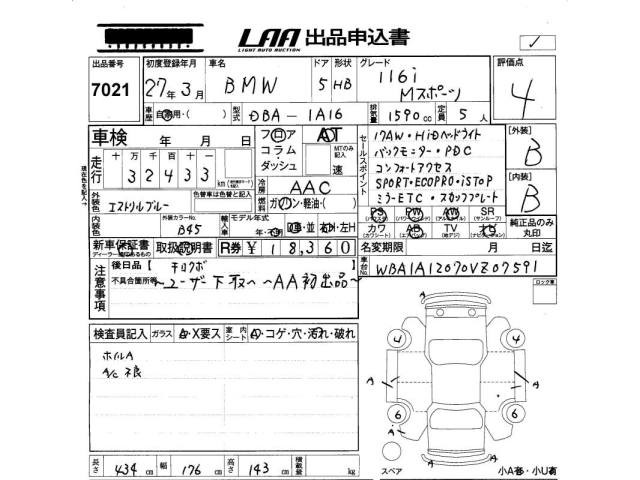 LAA 出品申込書
LIGHT AUTO AUCTION
出品番号 初度登録年月 車名 ドア 形状 グレード 評価点
7021 27年3月 BMW 5 HB 116i Mスポーツ 4
車歴 自家用・( ) 型式 DBA-1A16 排気量 1590cc 定員 5人
車検 年 月 日
フロア AT
コラム・ダッシュ MTのみ記入 速
セールスポイント
17AW・HiDヘッドライト
バックモニター・PDC
コンフォートアクセス
SPORT・ECOPRO・iSTOP
ミラーETC・スタッフプレート
[外装] B
[内装] B
走行 十万 万 千 百 十
3 2 4 3 3 km
冷房 AAC
燃料 ガソリン・軽油・( )
外装色 エストリルブルー
色替車は色替と記入
外装カラーNo. B45
輸入車 モデル年式 年・不明 並 右H・左H
PS PW AW SR
カワ AB TV ナビ
純正品のみ丸印
新車保証書 取扱説明書 R券 ¥18,360
名変期限 月 日迄
車台No. WBA1A12070VZ07591
注意事項 後日品【
不具合箇所等 ~ユーザー下取~ ~AA初出品~
ロック車
検査員記入 ガラス A・X要ス 室内シート A・コゲ・穴・汚れ・破れ
ホイルA
A/C 不良
A
4 4
A A
6 6
A
A
長さ 434cm 幅 176cm 高さ 143cm 積載量 kg
スペア 小A多・小U有
現在色を記入